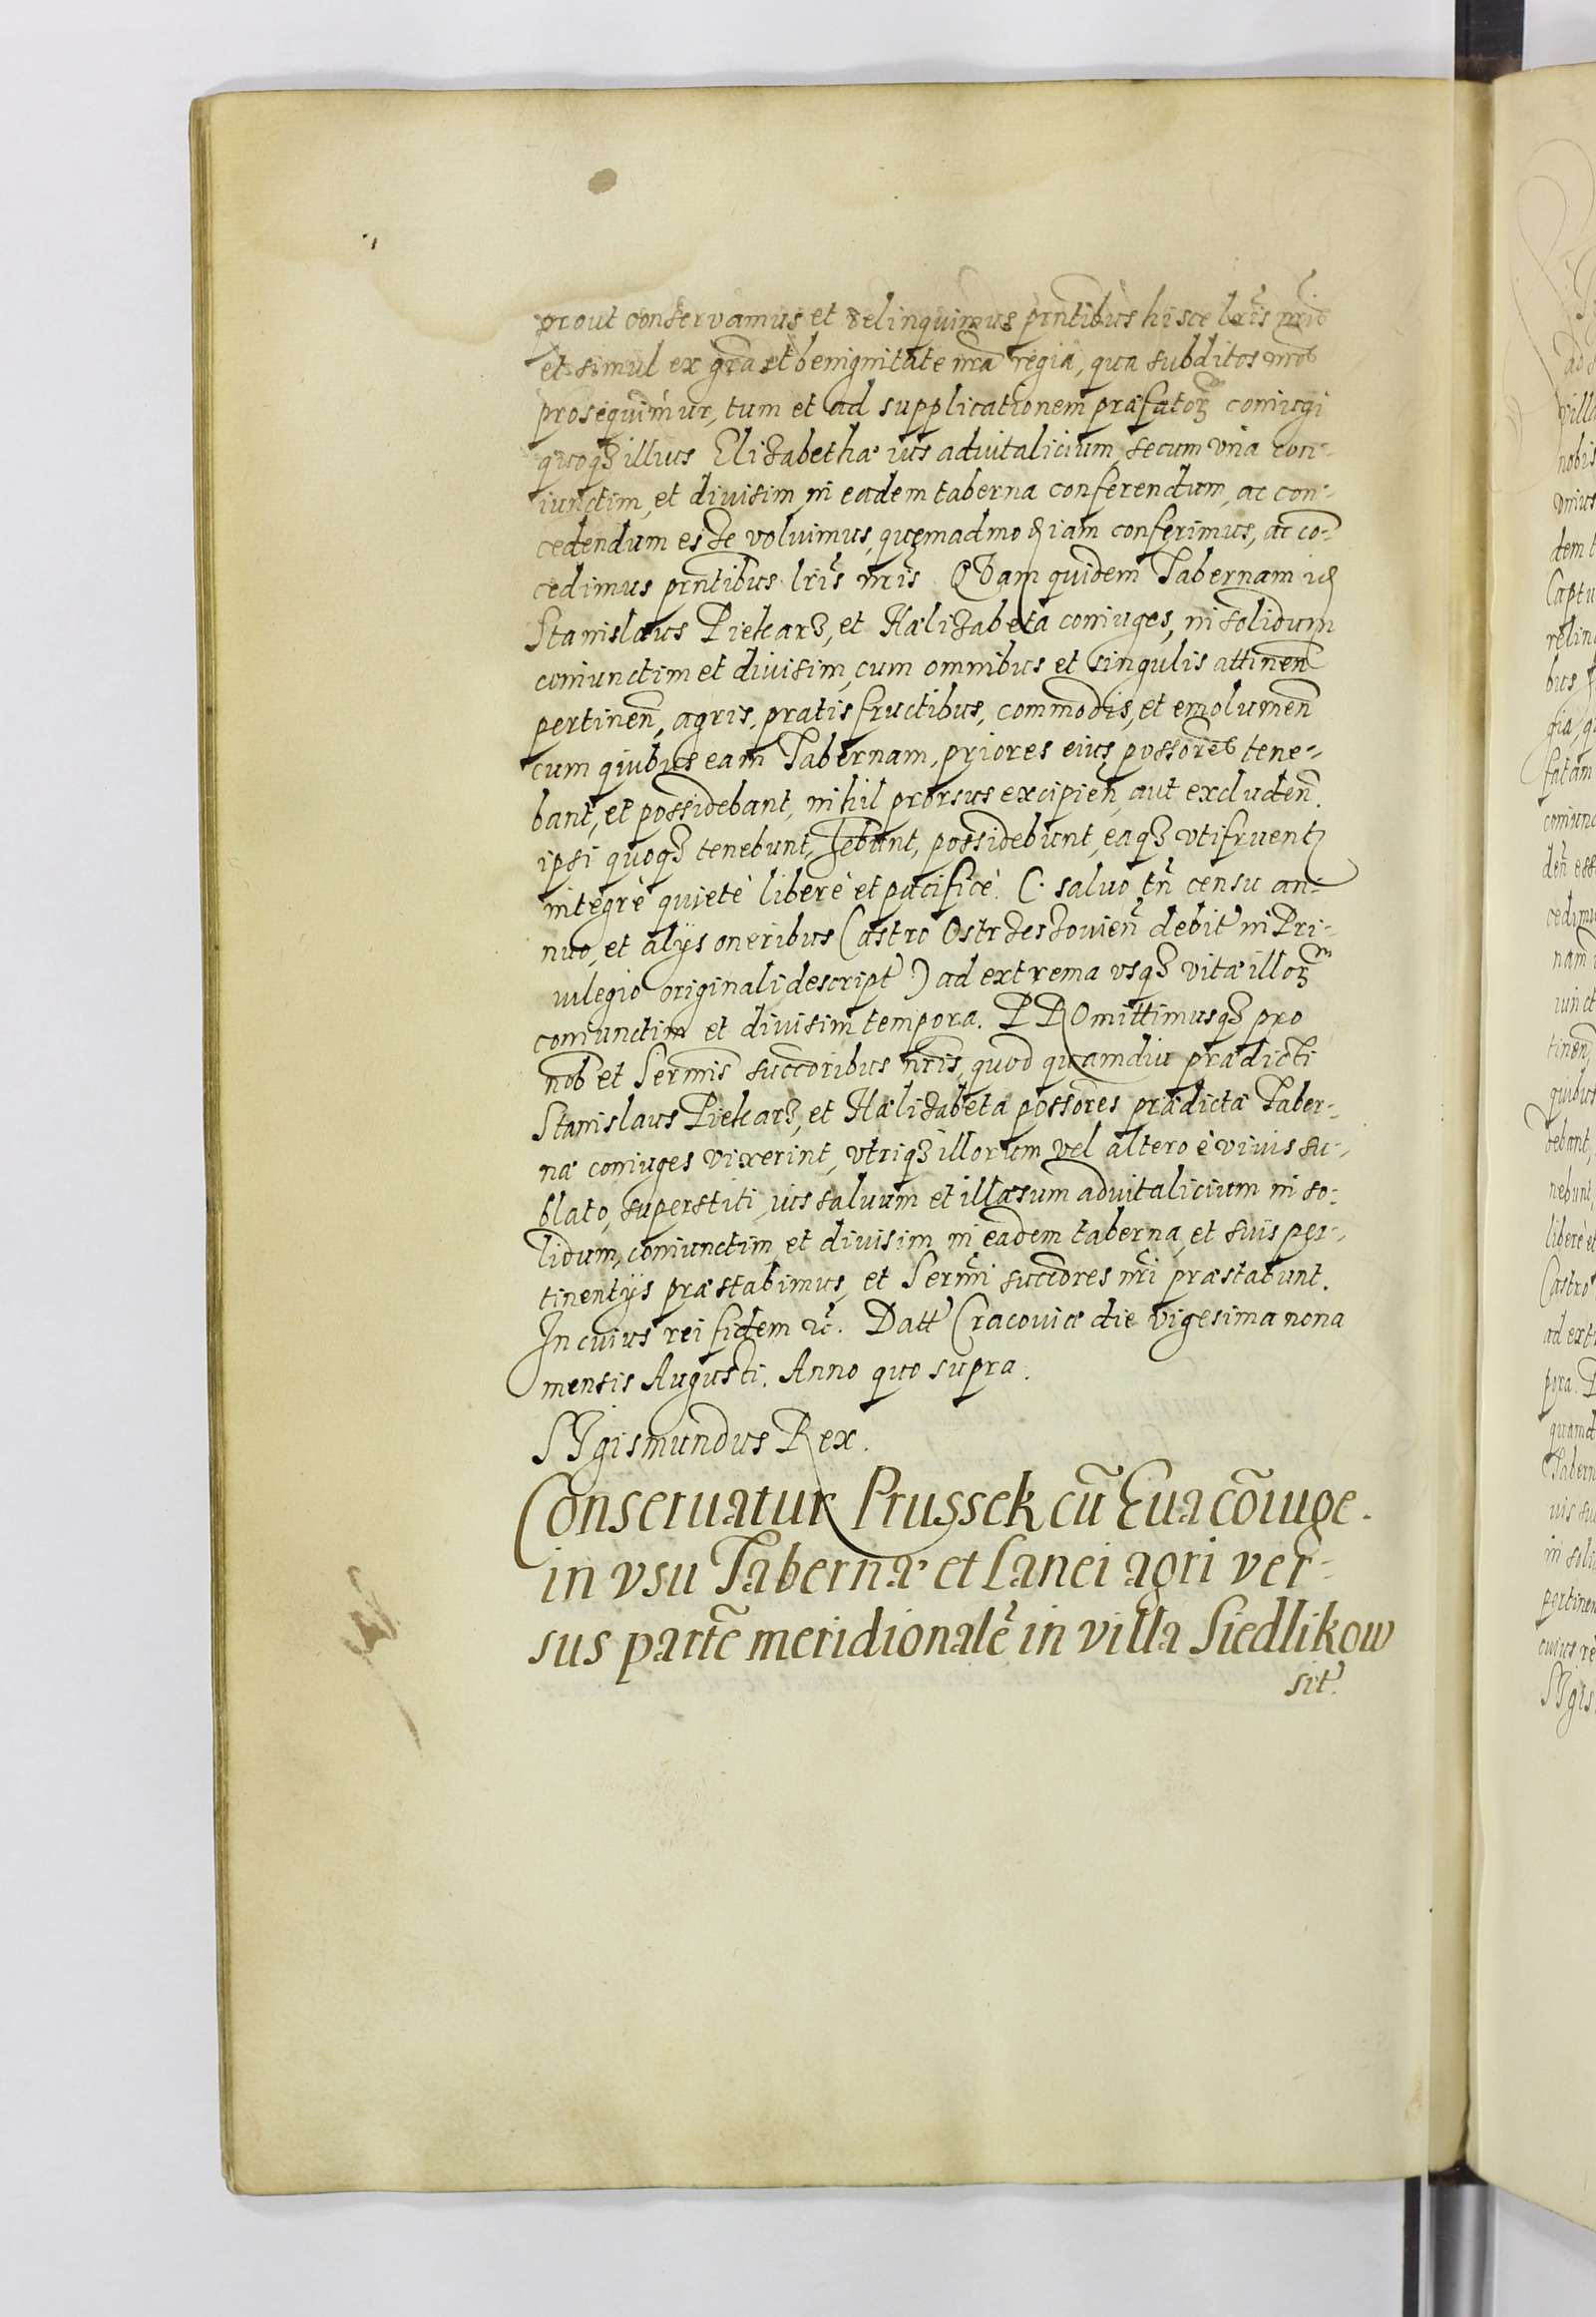 prout conservamus et relinquimus pr̃ntibus hisce lr̃is nr̃is
et simul ex gr̃a et benignitate nr̃a regia, qua subditos nr̃os
prosequimur, tum et ad supplicationem præfatoꝝ coniugi
quoqȝ illius Elizabethæ ius aduitalicium, secum vna con-
iunctim, et diuisim in eadem taberna conferendum, ac con-
cedendum esse voluimus, quemadmoდ iam conferimus, ac co-
cedimus pr̃ntibus lr̃is nr̃is. QVam quidem Tabernam
Stanislaus Piekarz, et Hælizabeta coniuges, in solidum
coniunctim et diuisim, cum omnibus et singulis attineñ
pertineñ, agris, pratis fructibus, commodis, et emolumeñ
cum quibus eam Tabernam, priores eius possor̃es tene-
bant, et possidebant, nihil prorsus excipieñ, aut excludeñ.
ipsi quoqȝ tenebunt, hẽbunt, possidebunt, eaqȝ vtifruentꝛ
integrè quietè liberè et pacificè. C. saluo tñ censu an-
nuo, et alijs oneribus Castro Ostrzeszouieñ debit in Pri-
uilegio originali descript) ad extrema vsqȝ vitæ illoꝝ
coniunctim et diuisim tempora. PROmittimusqȝ pro
nob et Serm̃is succõribus nr̃is, quod quamdiu prædicti
Stanislaus Piekarz, et Hælizabeta possõres prædictæ Taber-
næ coniuges vixerint, vtriqȝ illorum vel altero è viuis su-
blato, superstiti, ius saluum et illæsum aduitalicium in so-
lidum, coniunctim et diuisim in eadem taberna, et suis per-
tinentijs præstabimus, et Serm̃i succõres nr̃i præstabunt.
In cuius rei fidem &c. Datt Cracouiæ die vigesima nona
mensis Augusti. Anno quo supra.
SIgismundus Rex.
Conseruatur Prussek cũ Eua cõiuge.
in vsu Tabernæ et Lanei agri ver-
sus partẽ meridionalẽ in villa Siedlikow
sit.